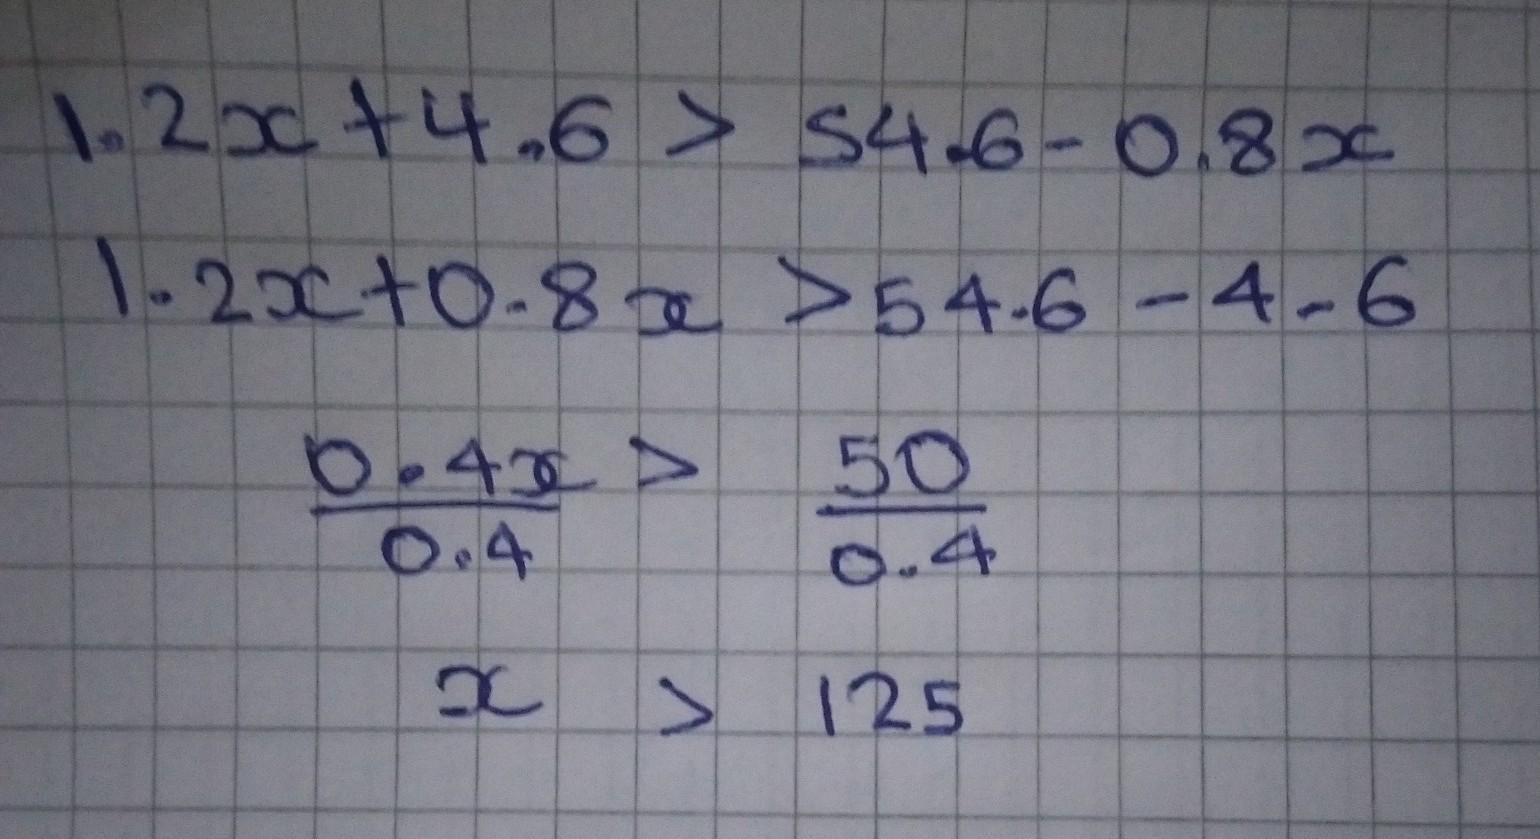 1.2x + 4.6 > 54.6 - 0.8x
1.2x + 0.8x > 54.6 - 4.6
0.4x > 50
0.4 0.4
x > 125